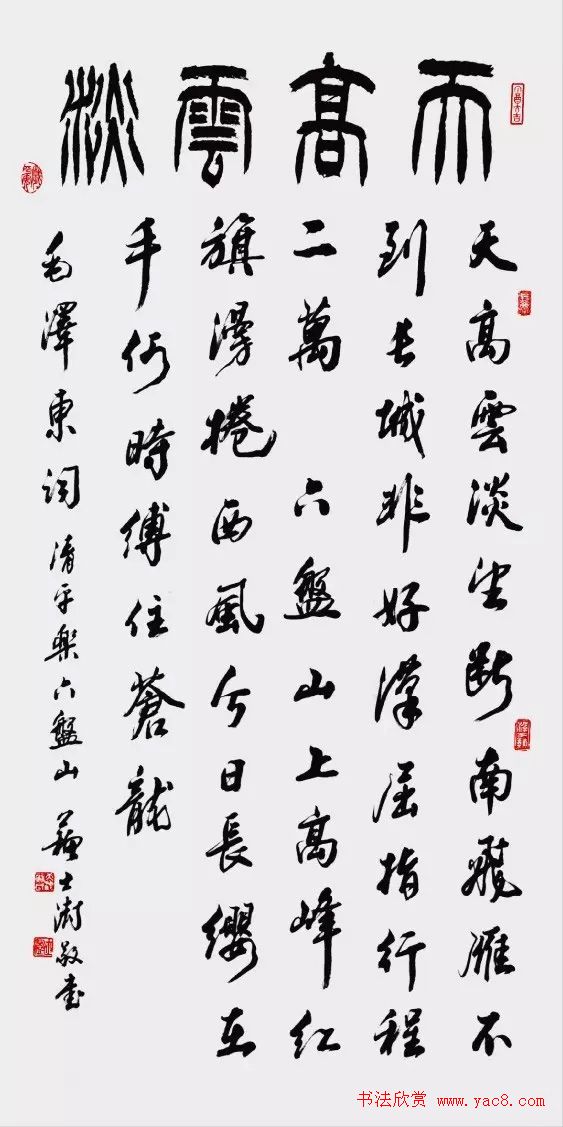 天高雲淡
天高雲淡望斷南飛雁不
到長城非好漢屈指行程
二萬 六盤山上高峰紅
旗漫捲西風今日長纓在
手何時縛住蒼龍
毛澤東詞 清平樂六盤山 蘇士澍敬書
书法欣赏 www.yac8.com